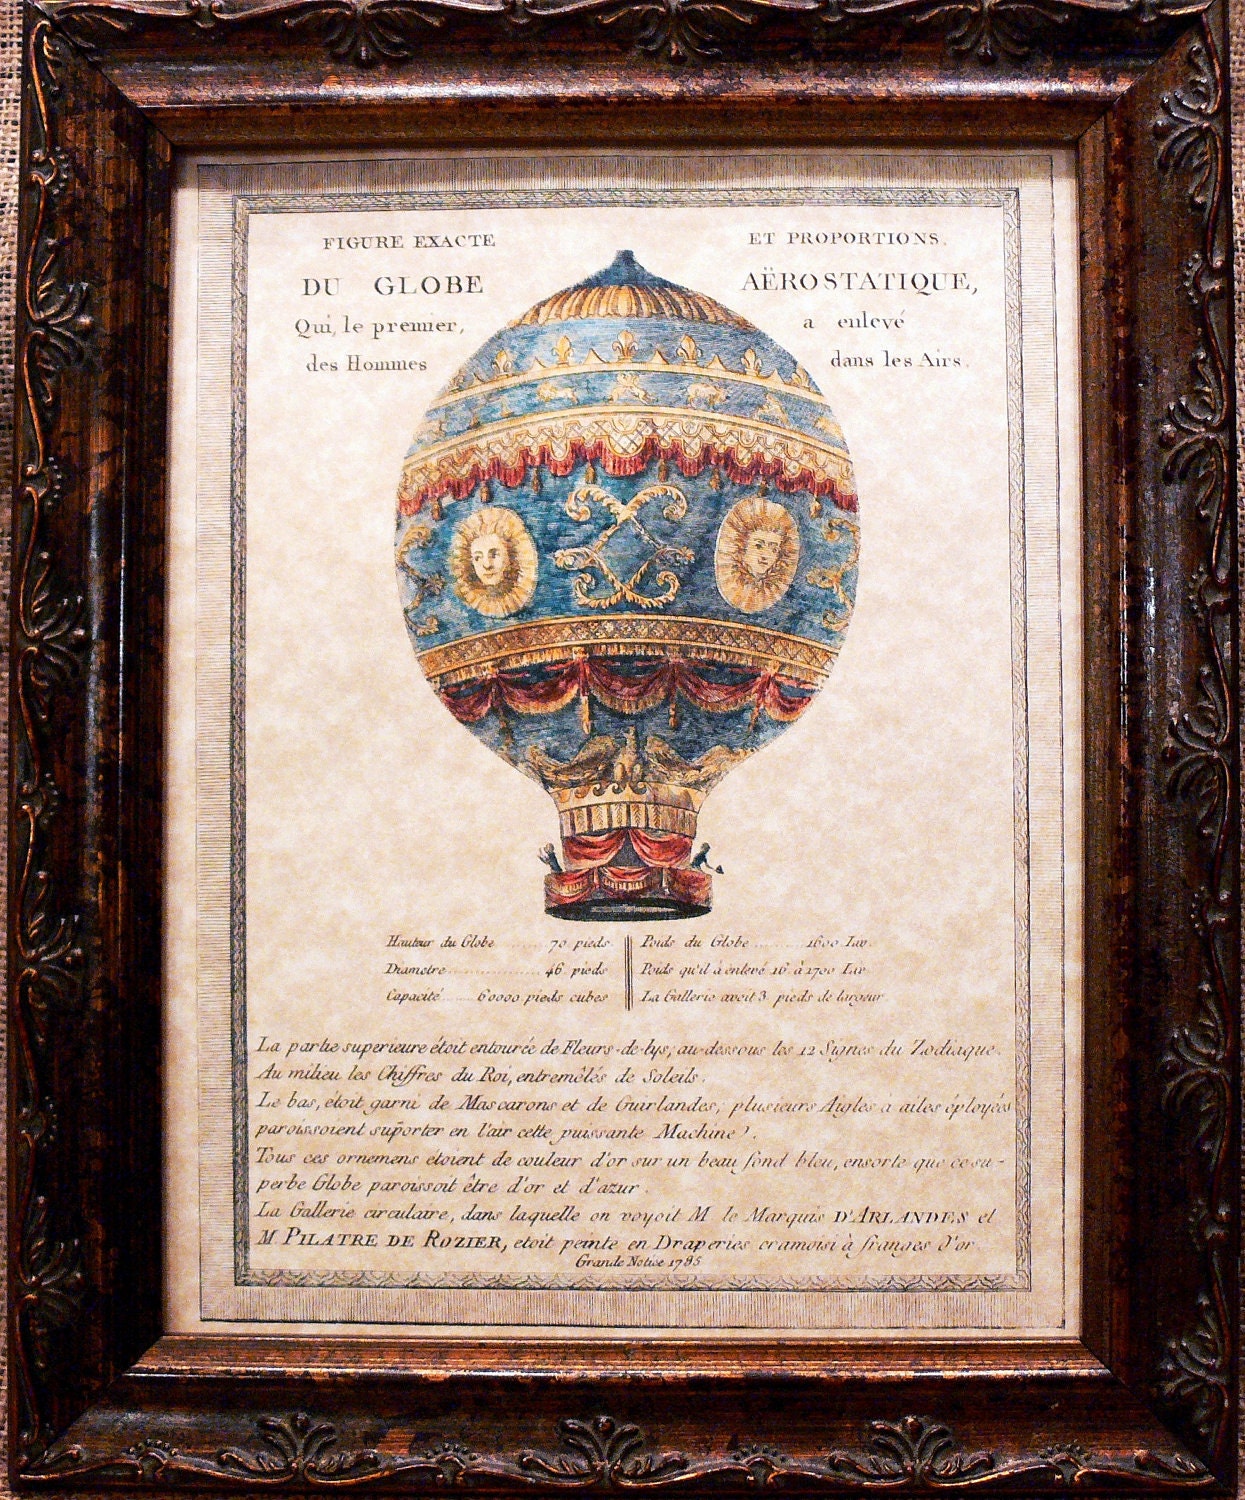 FIGURE EXACTE ET PROPORTIONS.
DU GLOBE AËROSTATIQUE,
Qui, le premier, a enlevé
des Hommes dans les Airs.
Hauteur du Globe ........ 70 pieds
Diametre .................. 46 pieds
Capacité ....... 60000 pieds cubes
Poids du Globe .......... 1600 Liv.
Poids qu'il à enlevé 16 à 1700 Liv
La Gallerie avoit 3 pieds de largeur
La partie superieure étoit entourée de Fleurs-de-lys, au-dessous les 12 Signes du Zodiaque.
Au milieu les Chiffres du Roi, entremêlés de Soleils.
Le bas, étoit garni de Mascarons et de Guirlandes; plusieurs Aigles à ailes éployées
paroissoient suporter en l'air cette puissante Machine.
Tous ces ornemens etoient de couleur d'or sur un beau fond bleu, ensorte que ce su-
perbe Globe paroissoit être d'or et d'azur.
La Gallerie circulaire, dans laquelle on voyoit M le Marquis D'ARLANDES et
M PILATRE DE ROZIER, etoit peinte en Draperies cramoisi à franges d'or
Grande Notice 1785